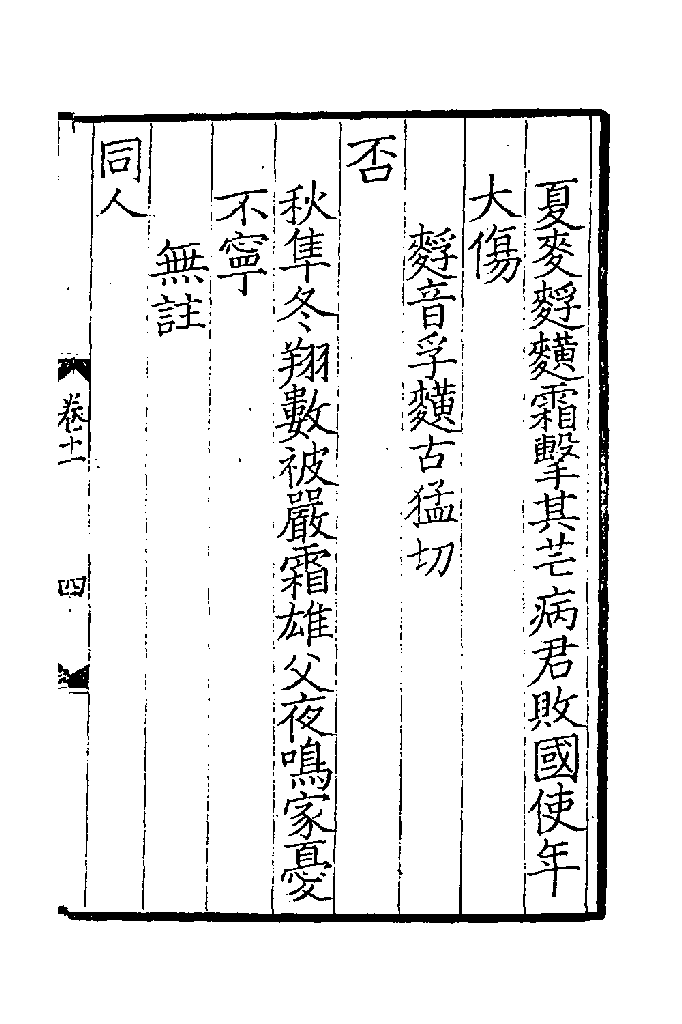 夏麥䴸䵃霜擊其芒病君敗國使年
大傷
䴸音孚䵃古猛切
否
秋隼冬翔數被嚴霜雄父夜鳴家憂
不寧
無註
同人
卷十一
四